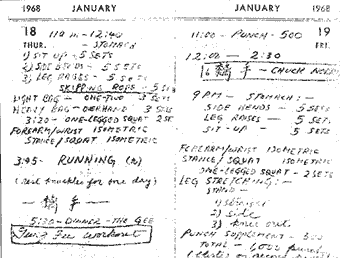 1968 JANUARY
18 11 a m - 12:40
THUR. - STOMACH
1) SIT UP - 5 SETS
2) SIDE BENDS - 5 SETS
3) LEG RAISES - 5 SETS
SKIPPING ROPE - 5
LIGHT BAG - ONE-TWO - SETS
HEAVY BAG - OVERHAND 5 SETS
3:20 - ONE-LEGGED SQUAT 2 SETS
FOREARM/WRIST ISOMETRIC
STANCE/SQUAT ISOMETRIC
3:45 - RUNNING
(rest knuckles for one day)
- 手 -
5:30 - DINNER - THE GEE
Tung Fee workout
JANUARY 1968
11:00 - PUNCH - 500 19
FRI.
12:00 - 2:30
手 - CHUCK NORRIS
9 PM - STOMACH:
SIDE BENDS - 5 SETS
LEG RAISES - 5 SETS
SIT-UP - 5 SETS
FOREARM/WRIST ISOMETRIC
STANCE/SQUAT ISOMETRIC
ONE-LEGGED SQUAT - 2 SETS
LEG STRETCHING:
STAND -
1) straight
2) side
3) knee out
PUNCH SUPPLEMENT - 500
TOTAL - 1,000 punch